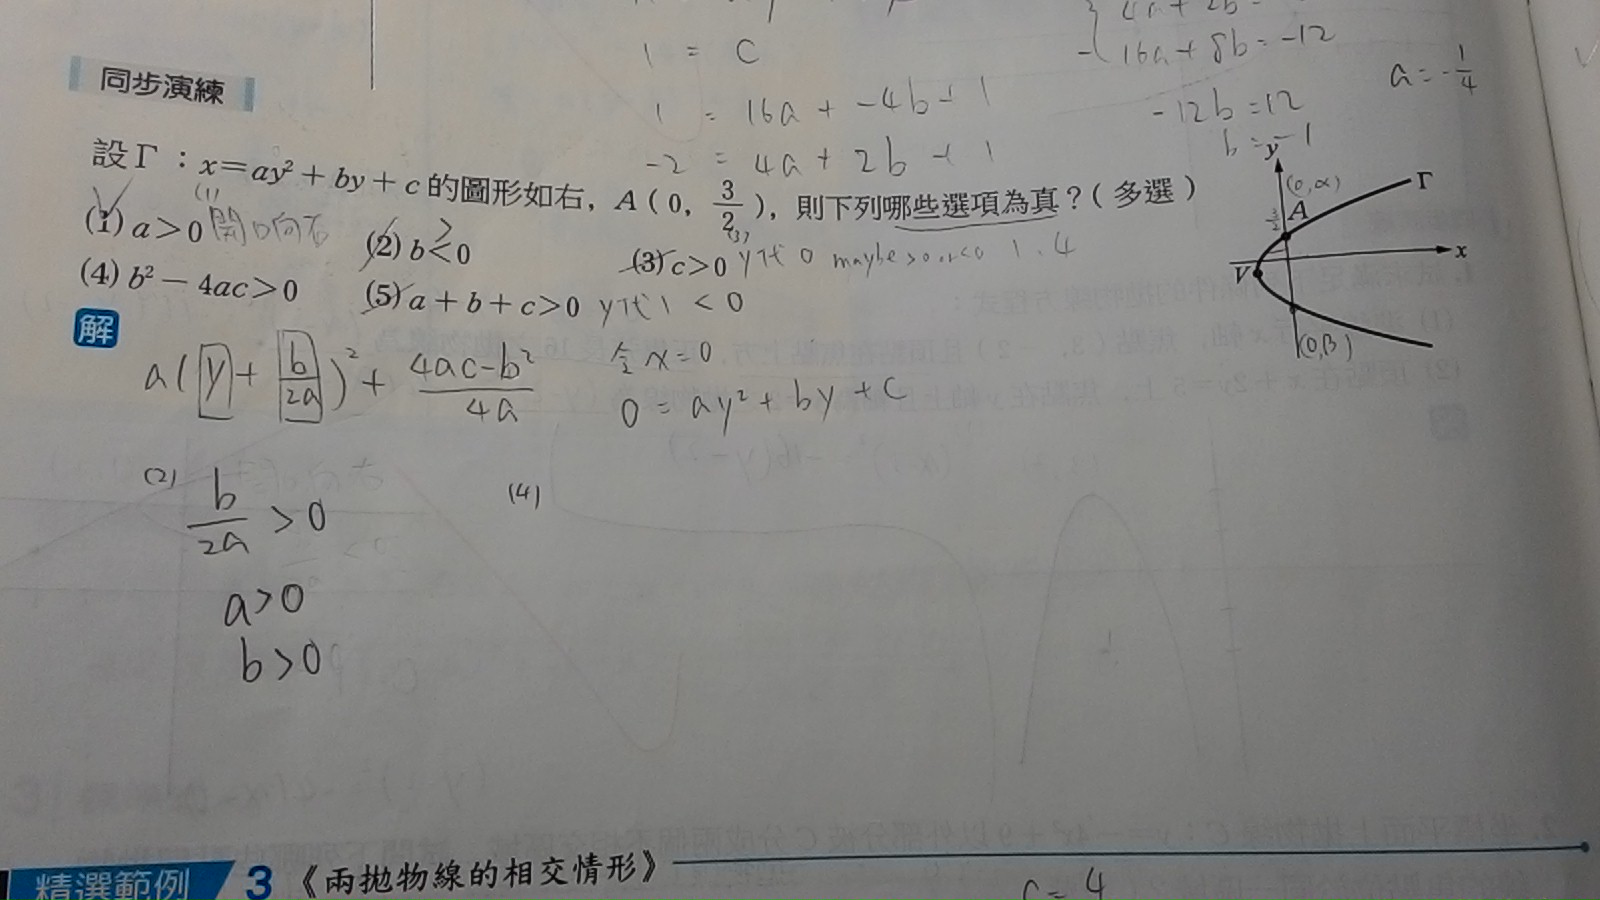 1 = C
4a + 2b =
16a + 8b = -12
a = -1/4
同步演練
1 = 16a + -4b + 1
-12b = 12
b = -1
-2 = 4a + 2b + 1
設Γ：x=ay²+by+c的圖形如右，A(0, 3/2)，則下列哪些選項為真？(多選)
(1) a>0 開口向右 (2) b<0 > (3) c>0 y代 0 maybe >0 or <0 1、4
(4) b²-4ac>0 (5) a+b+c>0 y代1 < 0
y
(0, α)
Γ
3/2
A
x
V
(0, β)
解
a(y + b/2a)² + (4ac-b²)/4a
令 x=0
0 = ay² + by + c
(2) b/2a > 0
(4)
a>0
b>0
精選範例 3《兩拋物線的相交情形》